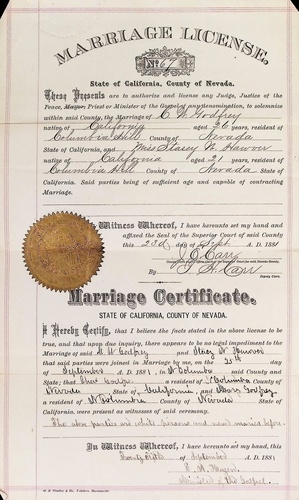 MARRIAGE LICENSE,
No 67
State of California, County of Nevada.
These Presents are to authorize and license any Judge, Justice of the
Peace, Mayor, Priest or Minister of the Gospel of any denomination, to solemnize
within said County, the Marriage of C W Godfrey
native of California aged 26 years, resident of
Columbia Hill County of Nevada
State of California, and Miss Stacey N.
native of California aged 21 years, resident of
Columbia Hill County of Nevada
State of California. Said parties being of sufficient age and capable of contracting
Marriage.
In Witness Whereof, I have hereunto set my hand and
affixed the Seal of the Superior Court of said County
this 23d day of Sept A. D. 188
By
Deputy Clerk.
Marriage Certificate.
STATE OF CALIFORNIA, COUNTY OF NEVADA.
I Hereby Certify, that I believe the facts stated in the above license to be
true, and that upon due inquiry, there appears to be no legal impediment to the
Marriage of said Godfrey and
that said parties were joined in Marriage by me, on the 25th day of
September A. D. 188 , in N Columbia said County and
State; that a resident of N Columbia County of
Nevada State of California, and Godfrey
a resident of N Columbia County of Nevada State of
California, were present as witnesses of said ceremony.
The above parties are white persons and never married before.
In Witness Whereof, I have hereunto set my hand, this
Twenty fifth of September
of the Gospel.